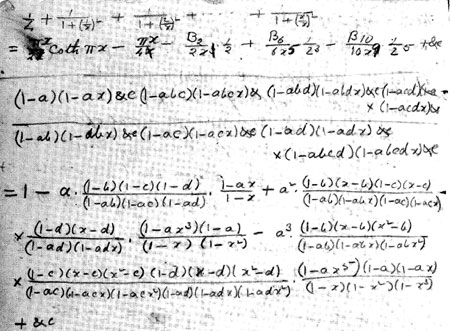 1/2 + 1/(1+(1/x)²) + 1/(1+(2/x)²) + + 1/(1+(x/x)²)
= πx/2 Coth πx - πx/4 - B₂/2x · 1/2 + B₆/6x⁵ · 1/2³ - B₁₀/10x⁹ · 1/2⁵ + &c
(1-a)(1-ax)&c (1-abc)(1-abcx)& (1-abd)(1-abdx)&c (1-acd)(1-a
× (1-acdx)&
(1-ab)(1-abx)&c (1-ac)(1-acx)&c (1-ad)(1-adx)&c
× (1-abcd)(1-abcdx)&c
= 1 - a · (1-b)(1-c)(1-d)/(1-ab)(1-ac)(1-ad) · (1-ax)/(1-x) + a² · (1-b)(x-b)(1-c)(x-c)/(1-ab)(1-abx)(1-ac)(1-acx)
× (1-d)(x-d)/(1-ad)(1-adx) · (1-ax³)(1-a)/(1-x)(1-x²) - a³ (1-b)(x-b)(x²-b)/(1-ab)(1-abx)(1-abx²)
× (1-c)(x-c)(x²-c)(1-d)(x-d)(x²-d)/(1-ac)(1-acx)(1-acx²)(1-ad)(1-adx)(1-adx²) · (1-ax⁵)(1-a)(1-ax)/(1-x)(1-x²)(1-x³)
+ &c